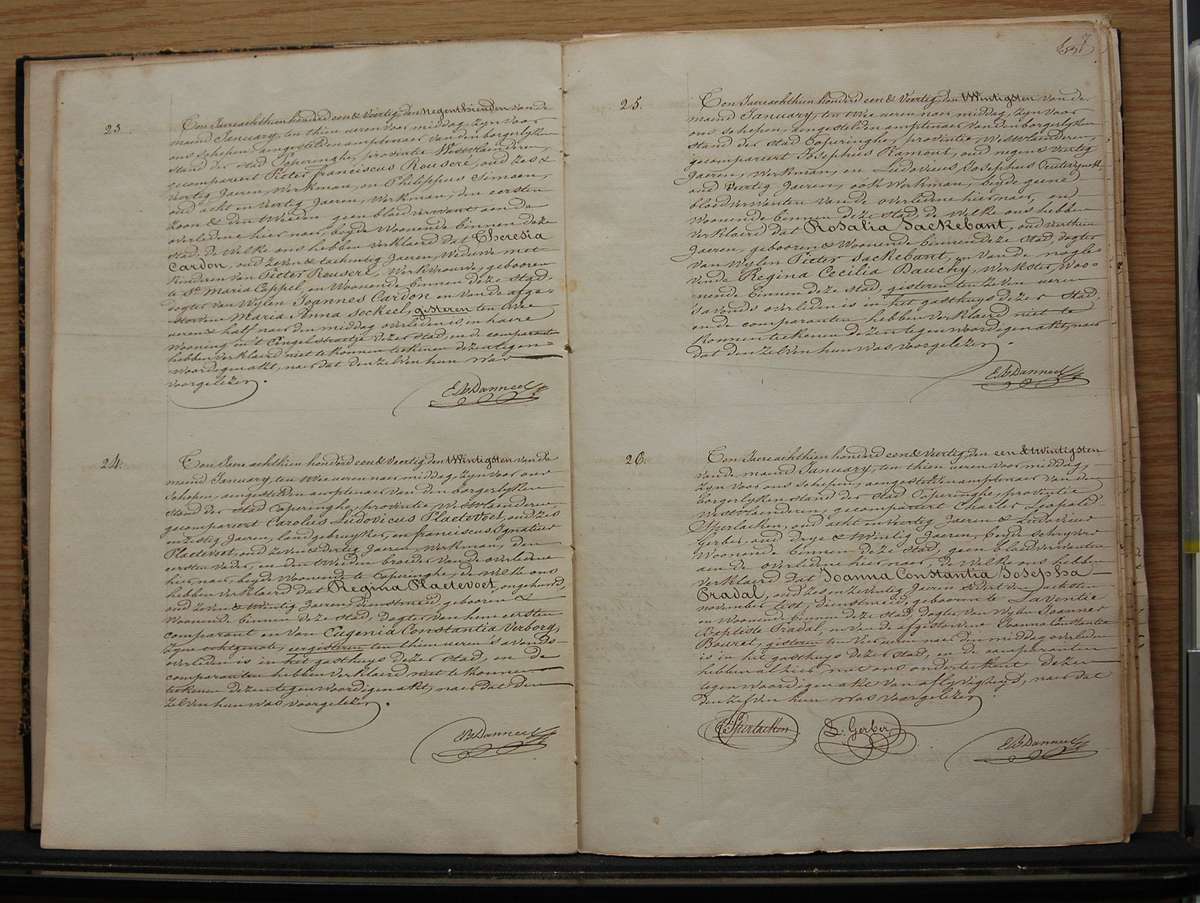 23.
Ten Jaere achthien honderd een & Veertig, den Negenthienden van de
maend January, ten thien ueren voor middag, zyn voor
ons schepen, aengestelden amptenaer van den borgerlyken
stand der stad Poperinghe, provintie Westvlaenderen,
gecompareert Pieter franciscus Rouseré, oud zes &
Veertig Jaeren, Werkman, en Philippus Simoen,
oud acht en Veertig Jaeren, Werkman, den eersten
zoon & den tweeden geen bloedverwant aen de
overledene hier naer, beyde Woonende binnen deze
stad, de Welke ons hebben Verklaerd dat Theresia
Cardon, oud zeven & tachentig Jaeren, Weduwe met
kinderen van Pieter Rouseré, Werkvrouwe, geboren
te St Maria Cappel, en Woonende binnen deze Stad,
dogter van Wylen Joannes Cardon en van de afge-
storvene Maria Anna Sockeel, gisteren ten twee
ueren & half naer den middag overleden is in haere
Wooning in 't Engelstraetje dezer Stad, en de comparanten
hebben Verklaerd niet te konnen teekenen dezen tegen-
Woordigen akt, naer dat den zelven hun Was
Voorgelezen.
24.
Ten Jaere achthien honderd een & Veertig, den twintigsten van de
maend January, ten twee ueren naer middag, zyn voor ons
schepen, aengestelden amptenaer van den borgerlyken
Stand der Stad Poperinghe, provintie Westvlaenderen
gecompareert Carolus Ludovicus Plaetevoet, oud zes
en Zestig Jaeren, landgebruyker, en franciscus Ignatius
Plaetevoet, oud Zeven & dertig Jaeren, Werkman, den
eersten vader, en den tweeden broeder van de overledene
hier naer, beyde Woonende te Poperinghe, de Welke ons
hebben Verklaerd dat Regina Plaetevoet, ongehuwd
oud Zeven & twintig Jaeren, dienstmeid, geboren &
Woonende binnen deze Stad, dogter van hene eersten
comparant en van Eugenia Constantia Verborg,
zyne echtgenote, eergisteren ten thien ueren s'avonds
overleden is in het gasthuys dezer stad, en de
comparanten hebben Verklaerd niet te konnen
teekenen dezen tegen Woordigen akt, naer dat den
zelven hun Was Voorgelezen.
25.
Ten Jaere achthien honderd een & Veertig, den twintigsten van de
maend January, ten twee ueren naer middag, zyn voor
ons schepen, aengestelden amptenaer van den borgerlyken
stand der Stad Poperinghe, provintie Westvlaenderen,
gecompareert Josephus oud negen & veertig
Jaeren, Werkman, en Ludovicus Josephus
oud Veertig Jaeren, ook Werkman, beyde geene
bloedverwanten van de overledene hier naer, en
Woonende binnen deze Stad, de Welke ons hebben
Verklaerd dat Rosalia Sackebant, oud veerthien
Jaeren, geboren & Woonende binnen deze Stad, dogter
van Wylen Pieter Sackebant, en van de nog le-
vende Regina Cecilia Dauchy, Werkster, Woo-
nende binnen deze Stad, gisteren ten zeven ueren
s'avonds overleden is in het gasthuys dezer Stad,
en de comparanten hebben Verklaerd niet te
konnen teekenen dezen tegenwoordigen akt, naer
dat den zelven hun was voorgelezen.
26.
Ten Jaere achthien honderd een & Veertig, den een & twintigsten
van de maend January, ten thien ueren voor middag,
zyn voor ons schepen, aengestelden amptenaer van den
borgerlyken stand der Stad Poperinghe, provintie
Westvlaenderen, gecompareert Charles Leopold
oud acht en Veertig Jaeren &
Gerber, oud drye & twintig Jaeren, beyde schryvers
Woonende binnen deze Stad, geen bloedverwanten
aen de overledene hier naer, de Welke ons hebben
Verklaerd dat Joanna Constantia Josepha
Pradal, oud zes en zeventig Jaeren sedert den
november lest, dienstmeid, geboren te La Ventie
en Woonende binnen deze Stad, dogter van Wylen Joannes
Baptiste Pradal, en van de afgestorvene Joanna Constantia
gisteren ten vier ueren naer de middag overleden
is in het gasthuys dezer Stad, en de comparanten
hebben alhier met ons onderteekent dezen
tegenwoordigen akt van aflyvigheyd, naer dat
den zelven hun Was Voorgelezen.
L. Gerber